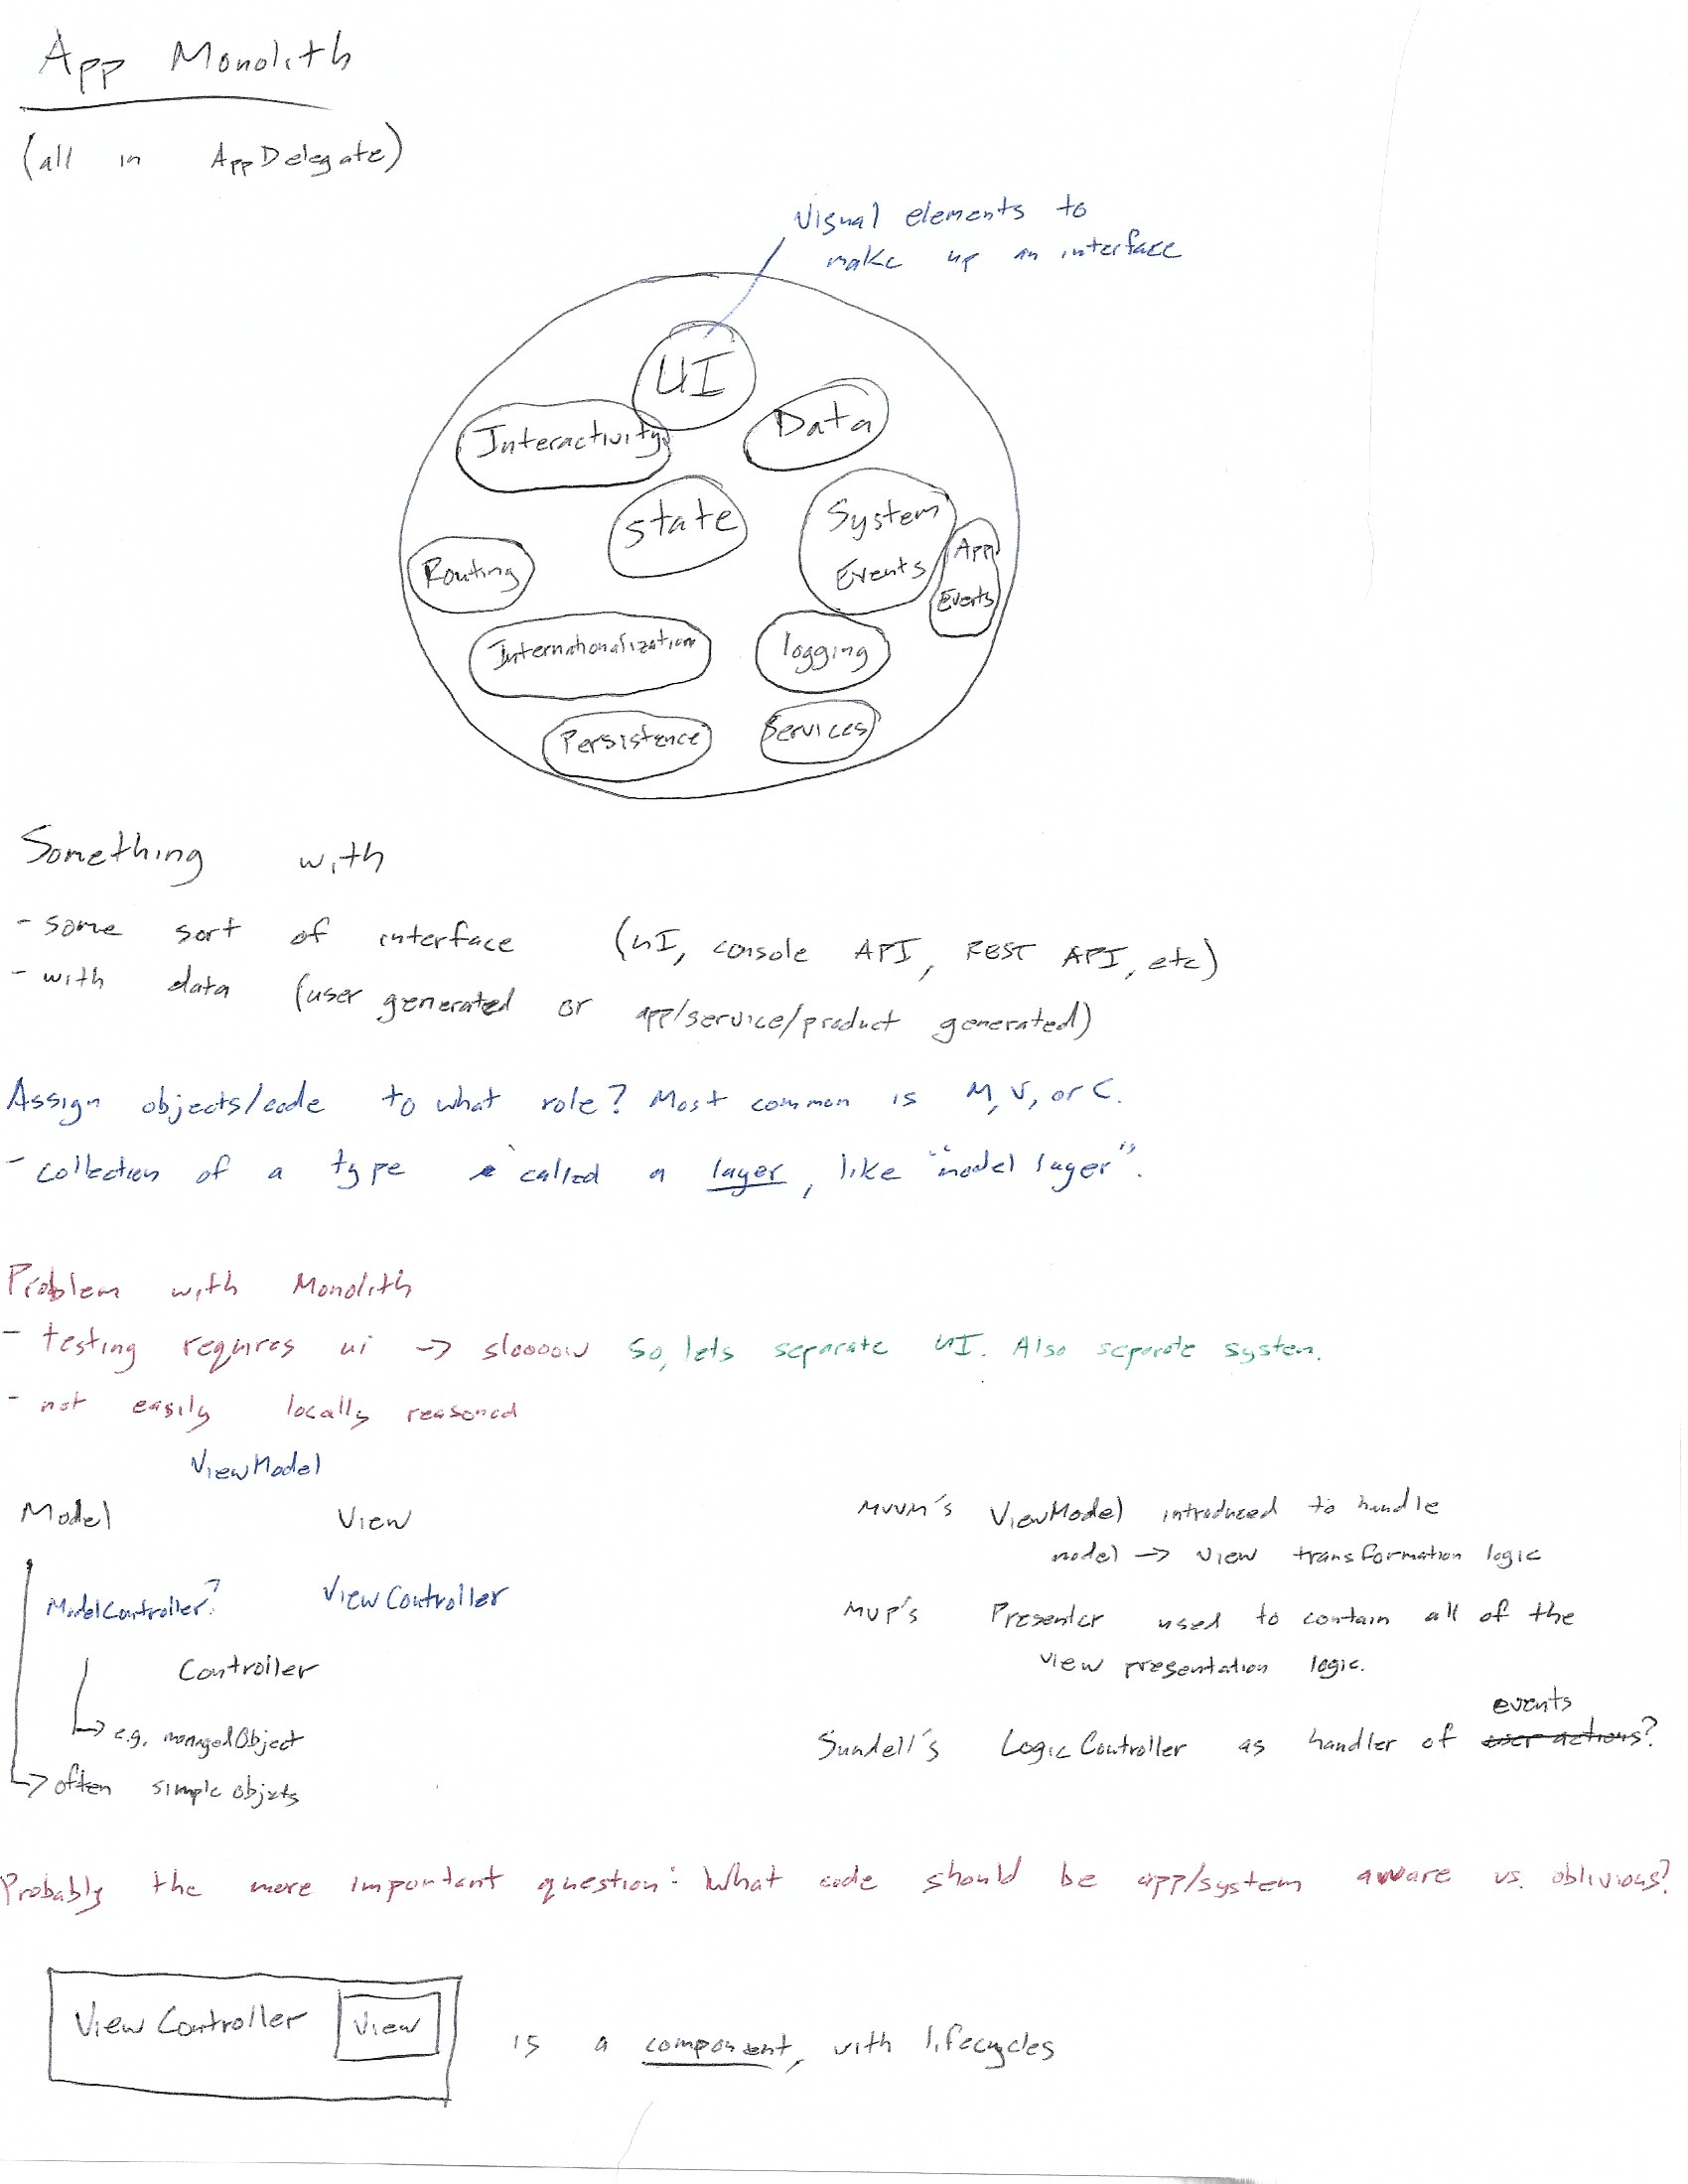 App Monolith
(all in AppDelegate)
Visual elements to
make up an interface
UI
Interactivity
Data
State
System
Events
App
Events
Routing
Internationalization
logging
Persistence
Services
Something with
- some sort of interface (UI, console API, REST API, etc)
- with data (user generated or app/service/product generated)
Assign objects/code to what role? Most common is M, V, or C.
- collection of a type called a layer, like "model layer".
Problem with Monolith
- testing requires ui -> sloooow So, lets separate UI. Also separate system.
- not easily locally reasoned
ViewModel
Model View
ModelController? ViewController
Controller
-> e.g. managedObject
-> often simple objects
MVVM's ViewModel introduced to handle
model -> view transformation logic
MVP's Presenter used to contain all of the
view presentation logic.
events
Sundell's LogicController as handler of user actions?
Probably the more important question: What code should be app/system aware vs. oblivious?
ViewController View is a component, with lifecycles